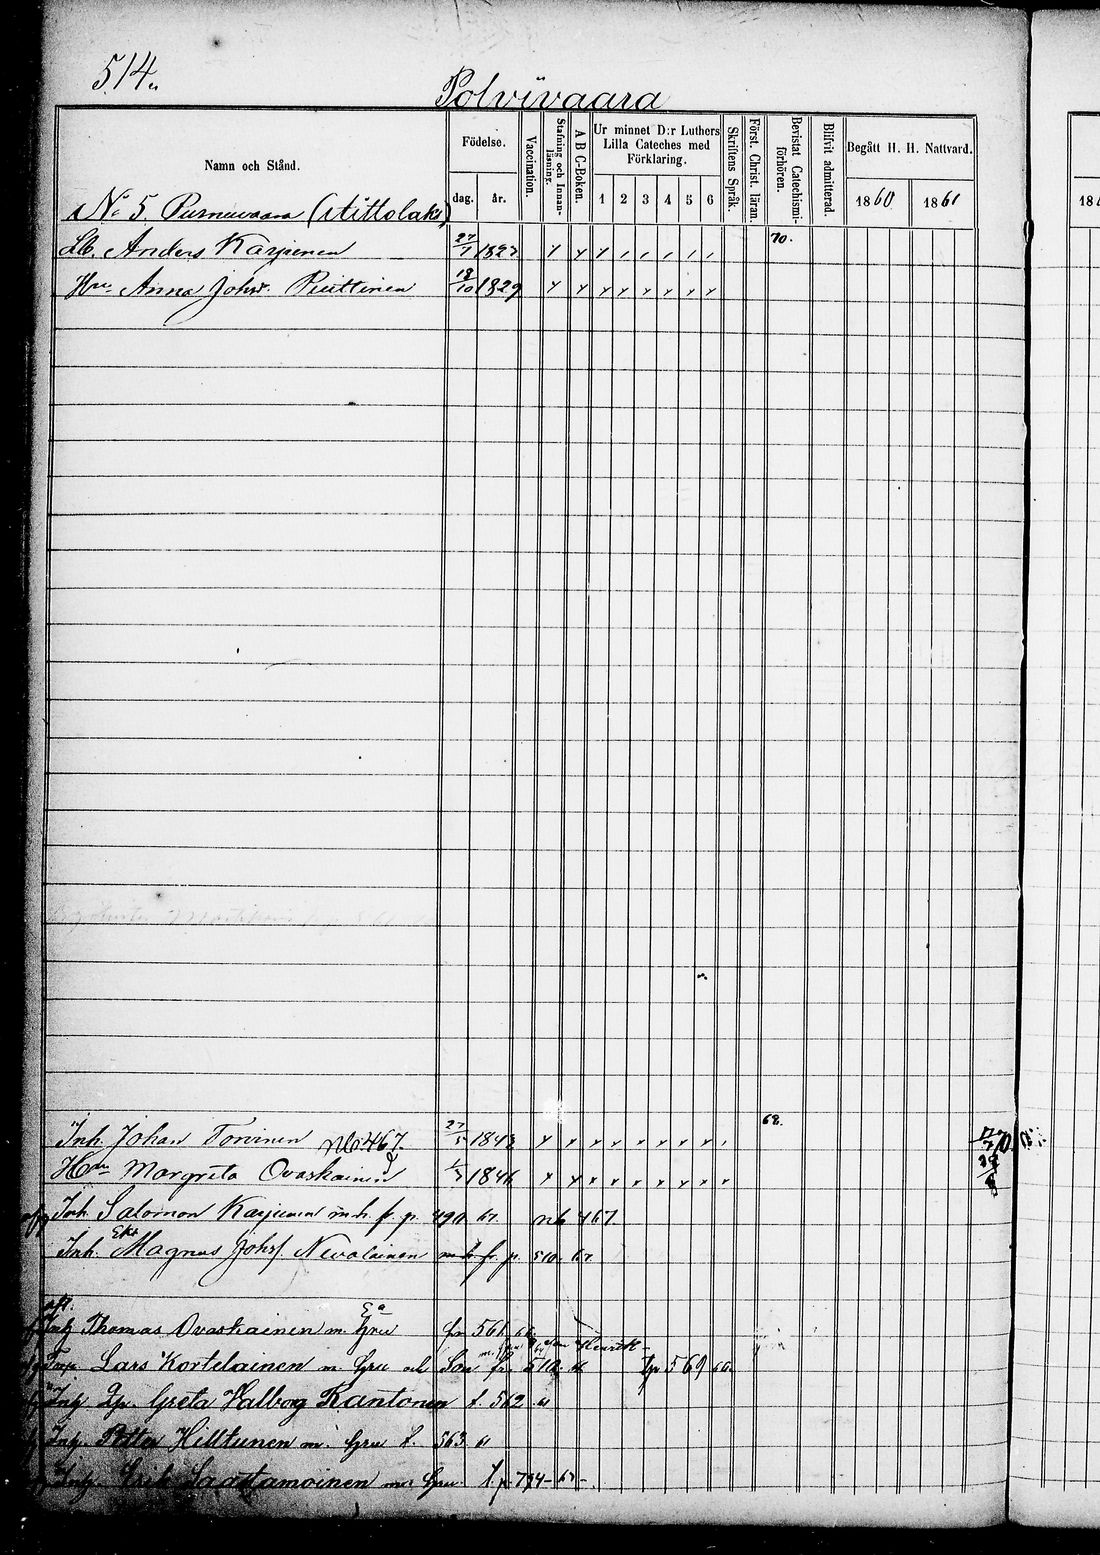 514.
Polvivaara
Namn och Stånd.
Födelse.
dag. år.
Vaccination.
Stafning och Innanläsning.
A B C-Boken.
Ur minnet D:r Luthers Lilla Cateches med Förklaring.
1 2 3 4 5 6
Skriftens Språk.
Först. Christ. läran.
Bevistat Catechismiförhören.
Blifvit admitterad.
Begått H. H. Nattvard.
1860 1861
184
No 5. Purnuvaara
Lb. Anders Karjunen 27/7 1823 70.
Hru Anna Johsr. Piuttinen 18/10 1829
68.
Inh. Johan Torvinen nb 467. 27/5 1843
Hru Margreta Ovaskainen 1846
Inh. Salomon Karjunen m.h. fr. p. 490 67 nb 467
Inh. Magnus Johsf. Nevalainen m.h. fr. p. 510 67
Inh Thomas Ovaskainen m. hru fr 566
Henrik
Lars Kortelainen m. hru och Son fr. 510 569 66
Inh. Greta Valborg Rantonen f. 562 61
Inh. Petter Hilltunen m. hru f. 563 61
Inh. Erik Saastamoinen m. hru 67